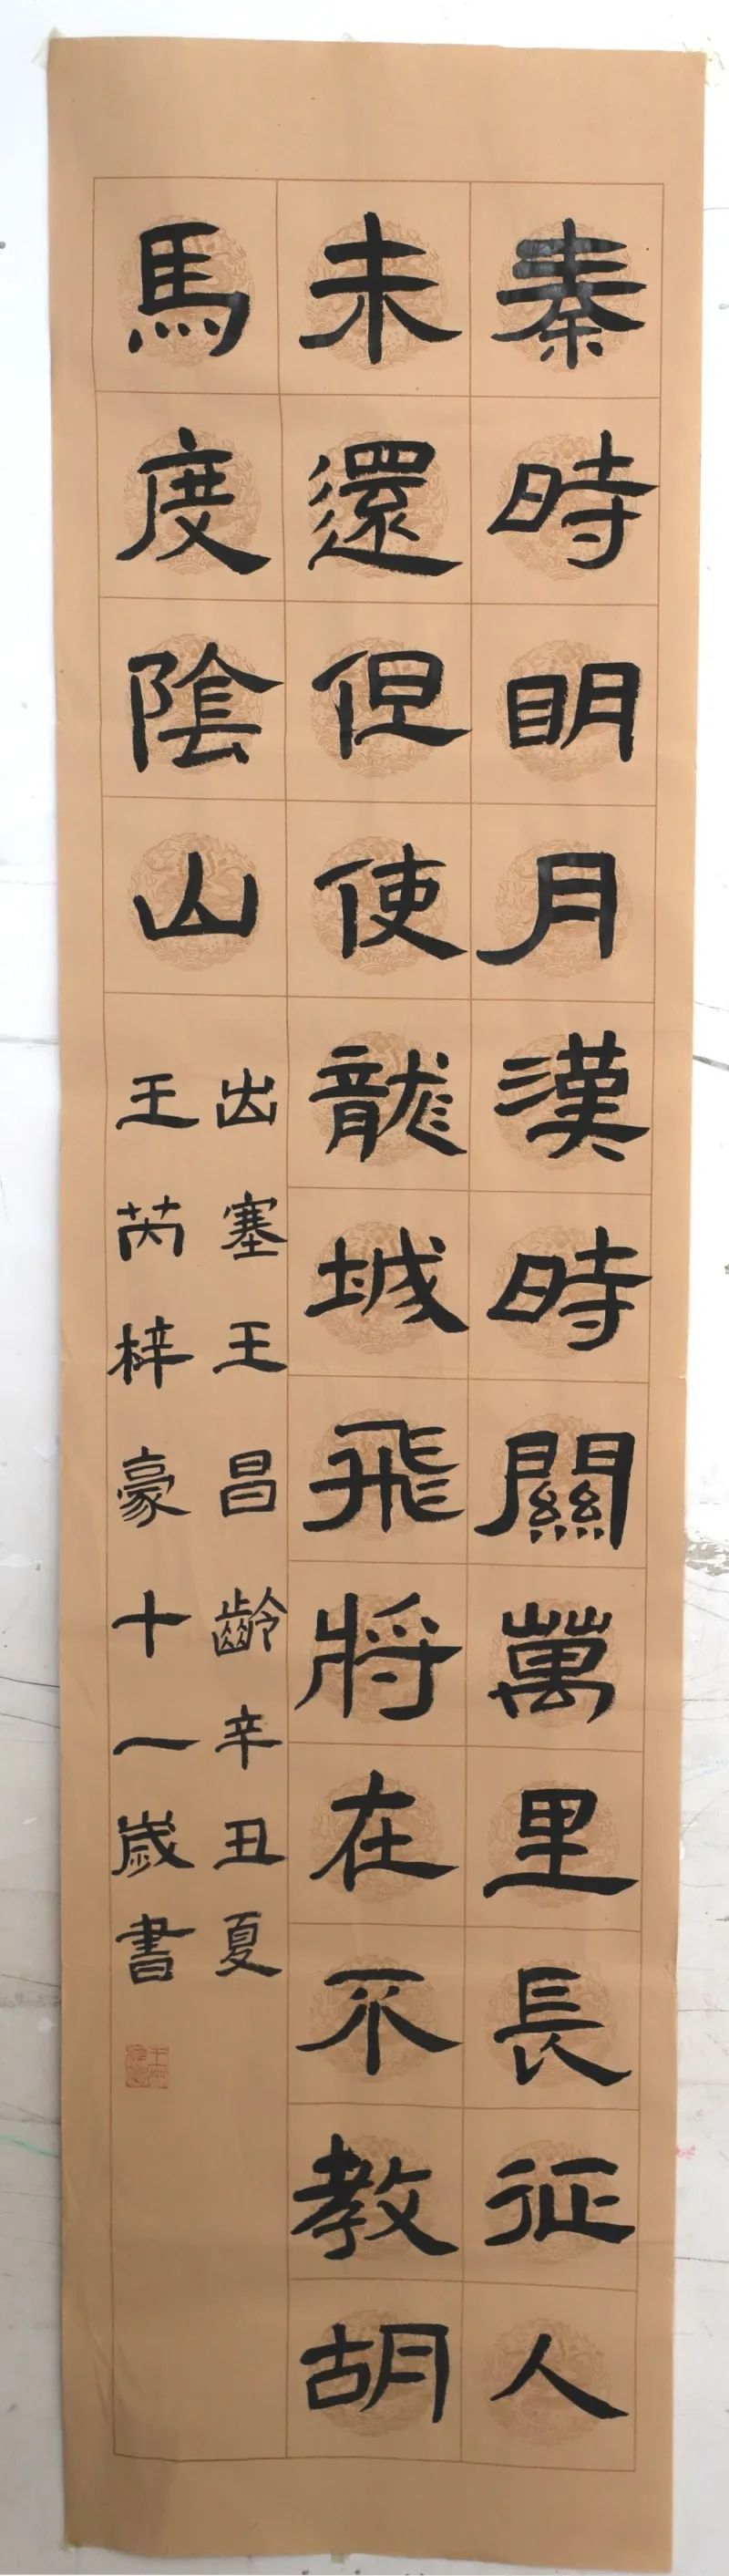 秦時明月漢時關萬里長征人
未還但使龍城飛將在不教胡
馬度陰山
出塞王昌齡辛丑夏
王芮梓豪十一歲書